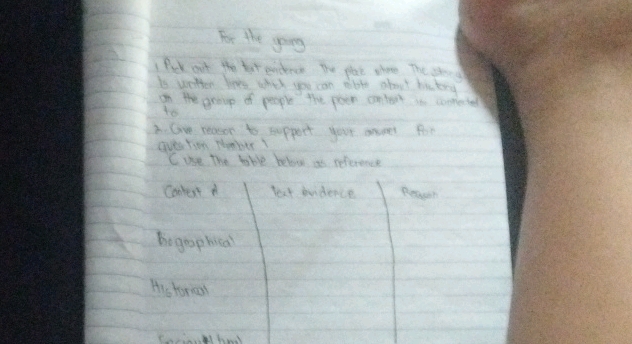 For the young
1. Pick out the text evidence The place where The
is written lives what you can about history
or the group of people the poem context is connected
to
2. Give reason to support your answer for
question number 1
C use the table below as reference
Context of Text evidence Reason
Biographical
Historical